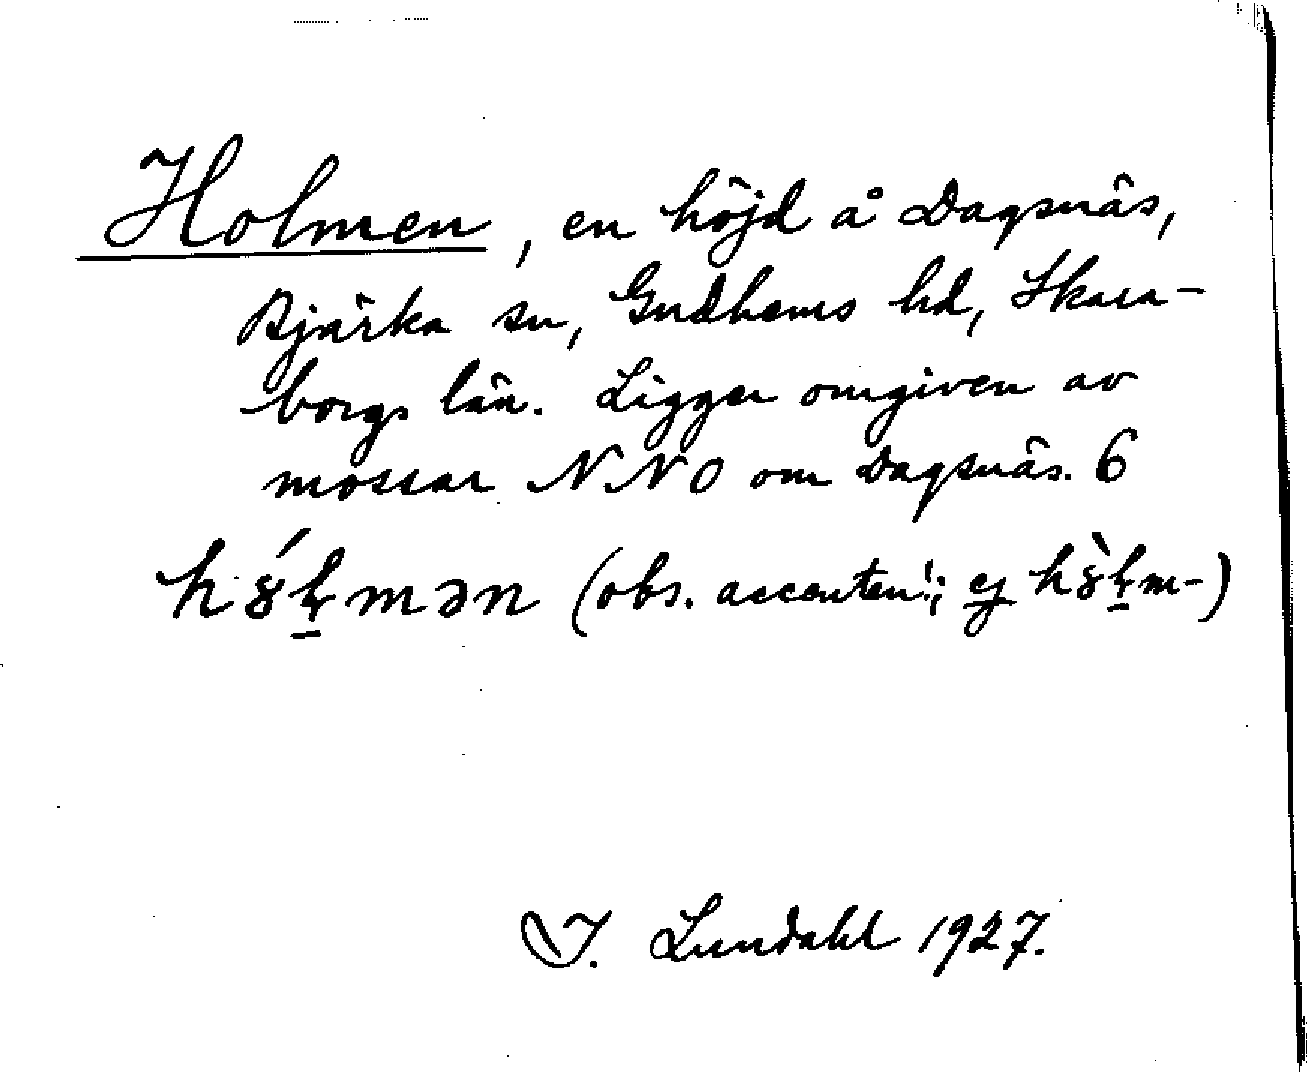 Holmen, en höjd å Dagsnäs,
Bjärka sn, Gudhems hd, Skara-
borgs län. Ligger omgiven av
mossar NNO om Dagsnäs. 6
(obs. accenten!; ej
I. Lundahl 1927.